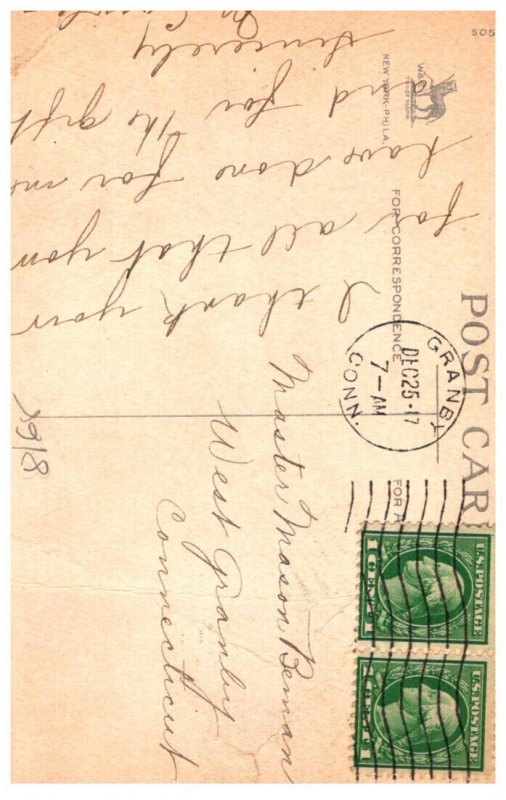 POST CAR
FOR CORRESPONDENCE
FOR A
505
W&
TRADE MARK
NEW YORK-PHILA.
GRANBY
DEC 25-17
7-AM
CONN.
U.S. POSTAGE
1 CENT 1
U.S. POSTAGE
1 CENT 1
I thank your
for all that you
have done for me
and for the gift
Sincerely
Master Mason Beman
West Granby
Connecticut